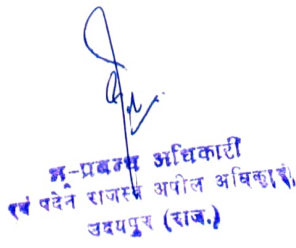 भू-प्रबन्ध अधिकारी
एवं पदेन राजस्व अपील अधिकारी,
उदयपुर (राज.)